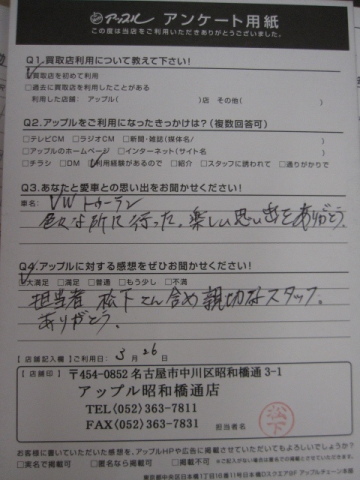 アップル アンケート用紙
この度は当店をご利用いただきありがとうございました。
Q1.買取店利用について教えて下さい!
□買取店を初めて利用
□過去に買取店を利用したことがある
利用した店舗: アップル( )店 その他( )
Q2.アップルをご利用になったきっかけは?(複数回答可)
□テレビCM □ラジオCM □新聞・雑誌(媒体名/ )
□アップルのホームページ □インターネット(サイト名 )
□チラシ □DM □利用経験があるので □紹介 □スタッフに誘われて □通りがかりで
Q3.あなたと愛車との思い出をお聞かせください!
車名: VW トゥーラン
色々な所に行った。楽しい思い出をありがとう。
Q4.アップルに対する感想をぜひお聞かせください!
□大満足 □満足 □普通 □もう少し □不満
担当者 松下さん含め親切なスタッフ。
ありがとう。
【店舗記入欄】【ご利用日: 3 月 26 日】
【店舗印】
〒454-0852 名古屋市中川区昭和橋通 3-1
アップル昭和橋通店
TEL(052)363-7811
FAX(052)363-7831
担当者名( 松下 )
お客様に書いていただいた感想を、アップルHPや広告に掲載させていただいてもよろしいでしょうか?
□実名で掲載可 □匿名なら掲載可 □掲載不可